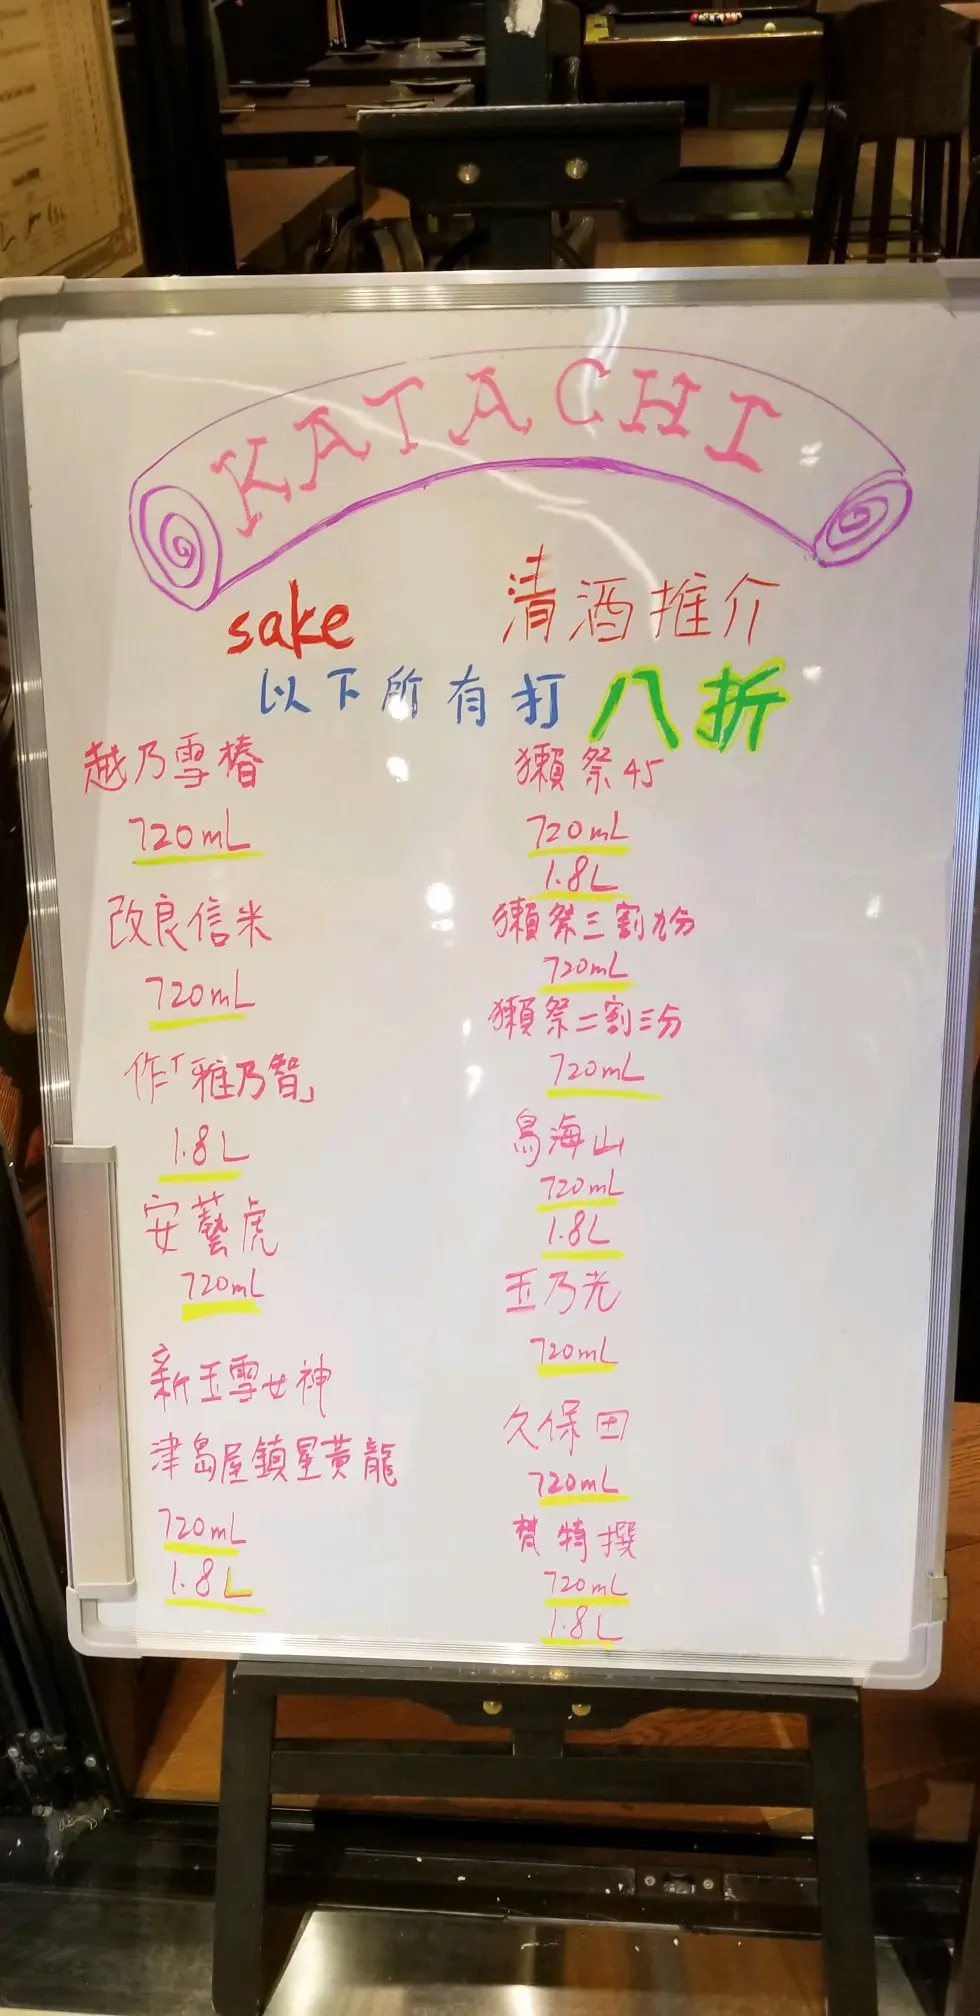 KATACHI
sake 清酒推介
以下所有打八折
越乃雪椿
720mL
改良信米
720mL
作「雅乃智」
1.8L
安藝虎
720mL
新玉雪女神
津島屋鎮星黃龍
720mL
1.8L
獺祭45
720mL
1.8L
獺祭三割九分
720mL
獺祭二割三分
720mL
鳥海山
720mL
1.8L
玉乃光
720mL
久保田
720mL
梵特撰
720mL
1.8L